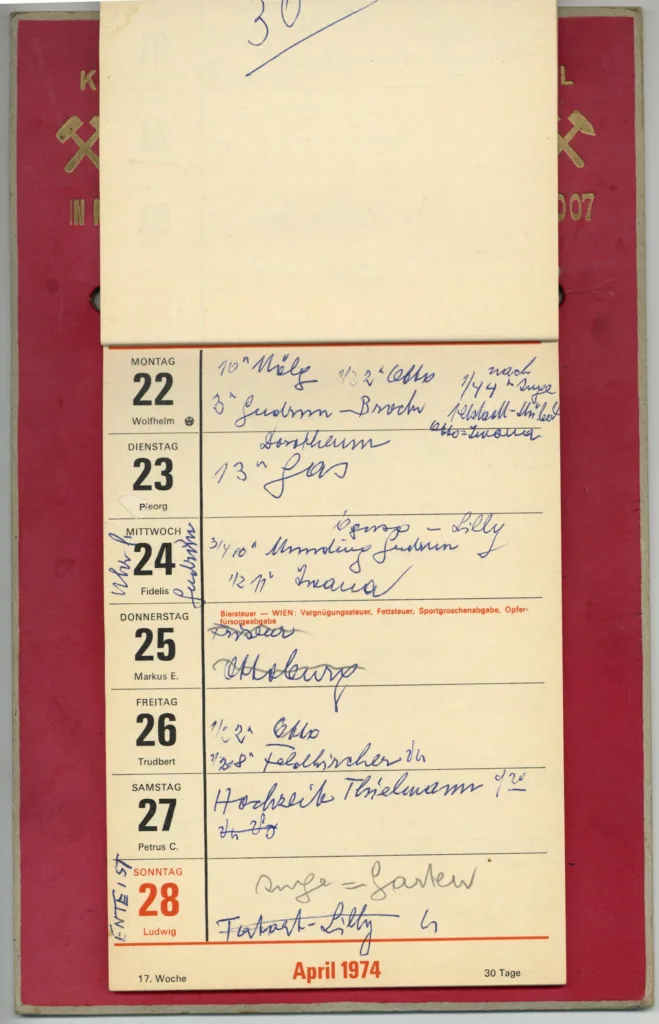 30
K L
IN 007
MONTAG
22
Wolfhelm
10h 1/3 2h Otto nach
3h Gudrun – Broch 1/4 4h Inge
Otto = Ivana
DIENSTAG
23
Pieorg
Dorotheum
13h Gas
MITTWOCH
24
Fidelis
Gudrun
– Lilly
3/4 10h Gudrun
1/2 11h Ivana
DONNERSTAG
25
Markus E.
Biersteuer — WIEN: Vergnügungssteuer, Fettsteuer, Sportgroschenabgabe, Opfer-
fürsorgeabgabe
Friseur
Ottoburg
FREITAG
26
Trudbert
1/2 2h Otto
1/2 8h Feldkircher
SAMSTAG
27
Petrus C.
Hochzeit Thielmann 9 20
SONNTAG
28
Ludwig
Inge = Garten
– Lilly
17. Woche
April 1974
30 Tage